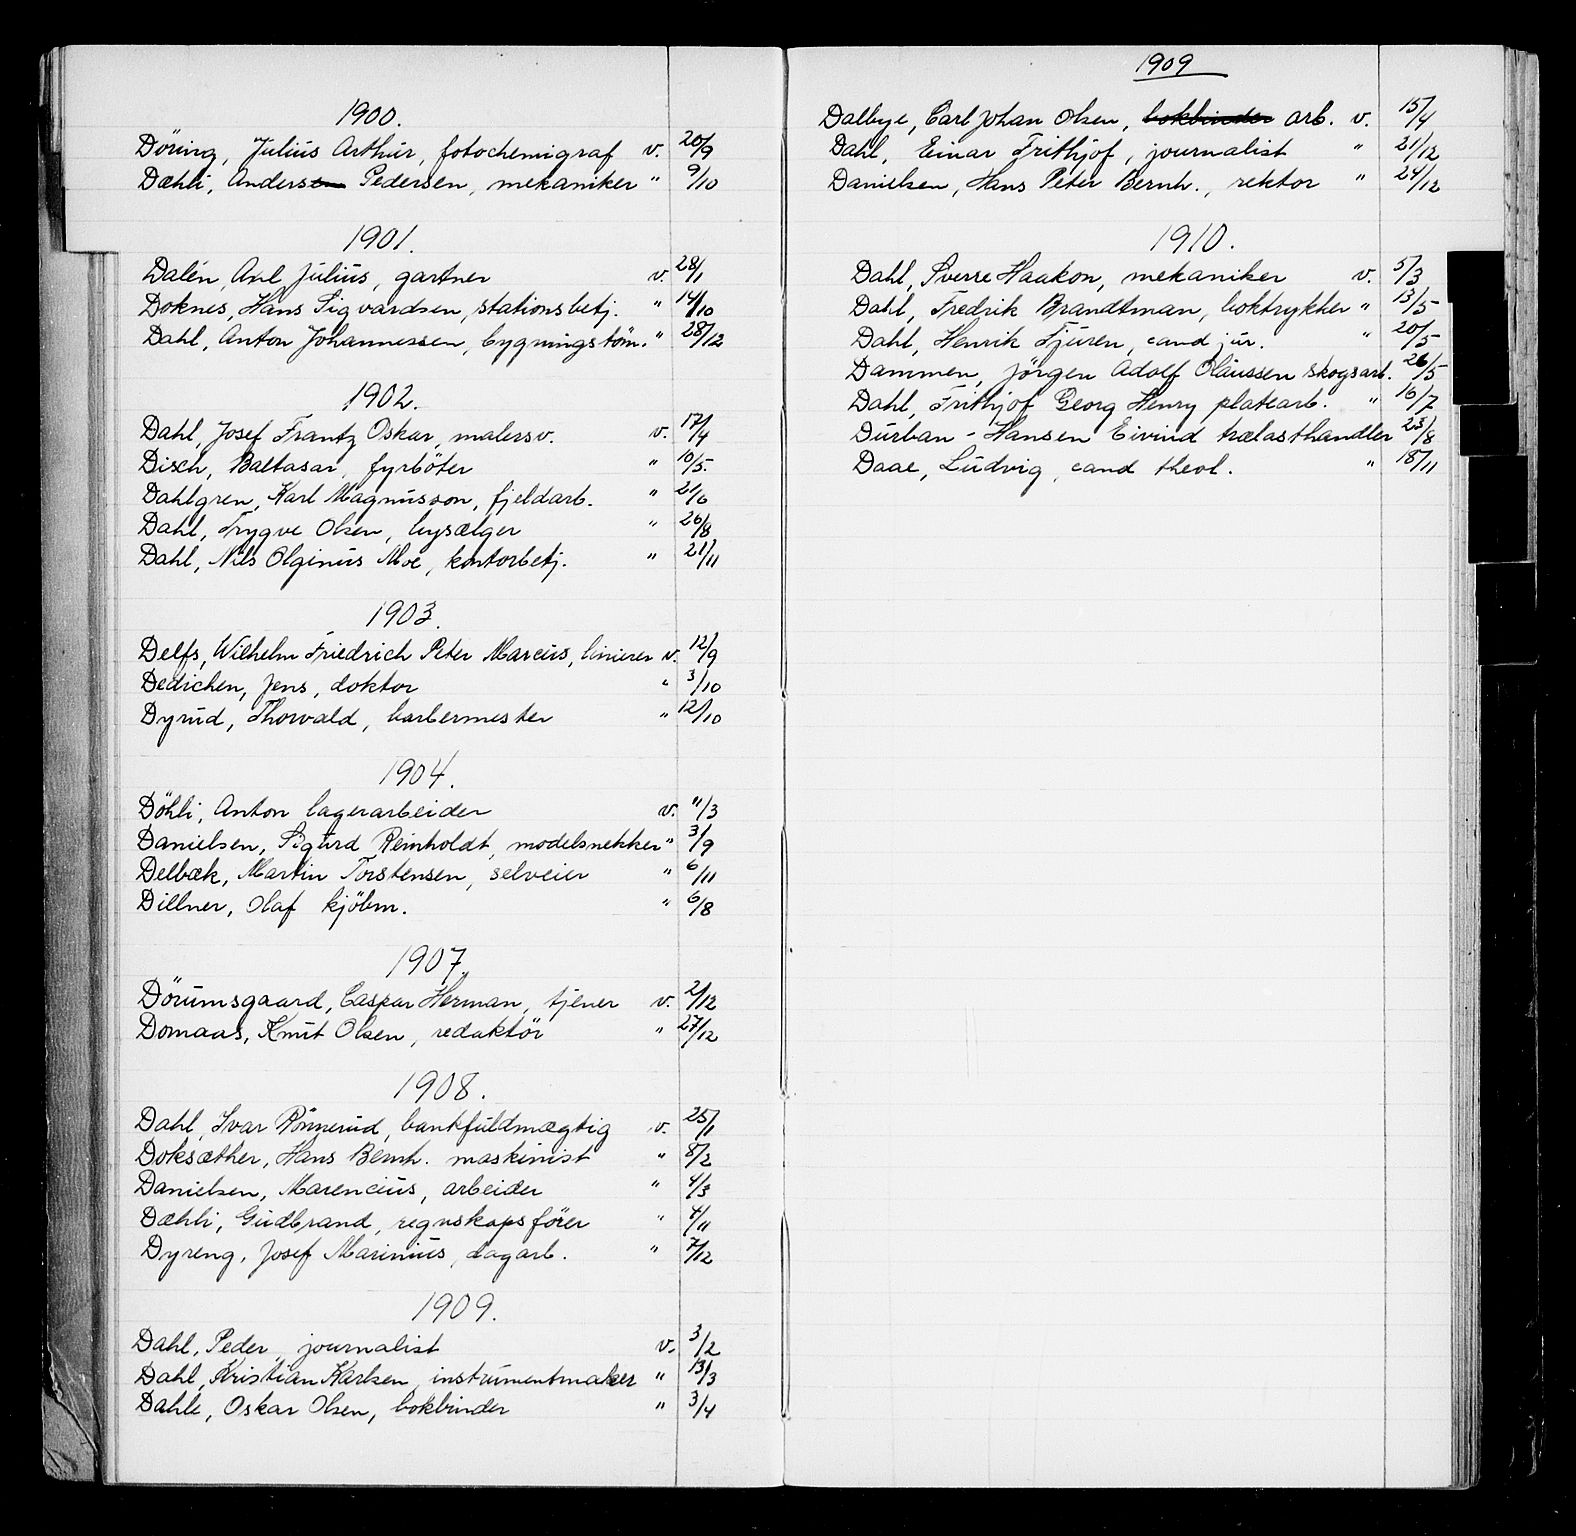 1900.
Döring, Julius Arthur, fotochemigraf v. 20/9
Dæhli, Anders Pedersen, mekaniker " 9/10
1901.
Dalén, Axel Julius, gartner v. 28/1
Doknes, Hans Sigvardsen, stationsbetj. " 14/10
Dahl, Anton Johannessen, bygningstöm. " 28/12
1902.
Dahl, Josef Frantz Oskar, malersv. v. 17/4
Disch, Baltasar, fyrböter " 10/5.
Dahlgren, Karl Magnusson, fjeldarb. " 21/6
Dahl, Trygve Olsen, bysælger " 26/8
Dahl, Nils Olginus Moe, kontorbetj. " 21/11
1903.
Delfs, Wilhelm Friedrich Peter Marcus, linierer v. 12/9
Dedichen, Jens, doktor " 3/10
Dyrud, Thorvald, barbermester " 12/10
1904.
Döhli, Anton lagerarbeider v. 11/3
Danielsen, Sigurd Reinholdt, modelsnekker " 3/9
Delbæk, Martin Torstensen, selveier " 6/11
Dillner, Olaf kjöbm. " 6/8
1907.
Dörumsgaard, Caspar Herman, tjener v. 2/12
Domaas, Knut Olsen, redaktör " 27/12
1908.
Dahl, Ivar Rönnerud, bankfuldmægtig v. 25/1
Doksæther, Hans Bernh. maskinist " 8/2
Danielsen, Marencius, arbeider " 4/3
Dæhli, Gudbrand, regnskapsförer " 4/11
Dyreng, Josef Marinius, dagarb. " 7/12
1909.
Dahl, Peder, journalist v. 3/2
Dahl, Kristian Karlsen, instrumentmaker " 13/3
Dahle, Oskar Olsen, bokbinder " 3/4
1909
Dalbye, Carl Johan Olsen, bokbinder arb. v. 15/4
Dahl, Einar Frithjof, journalist " 21/12
Danielsen, Hans Peter Bernh., rektor " 24/12
1910.
Dahl, Sverre Haakon, mekaniker v. 5/3
Dahl, Fredrik Brandtman, boktrykker " 13/5
Dahl, Henrik Fjuren, cand jur. " 20/5
Dammen, Jörgen Adolf Olaussen skogsarb. 26/5
Dahl, Frithjof Georg Henry platearb. " 16/7
Durban-Hansen Eivind trælasthandler 23/8
Daae, Ludvig, cand theol. " 18/11